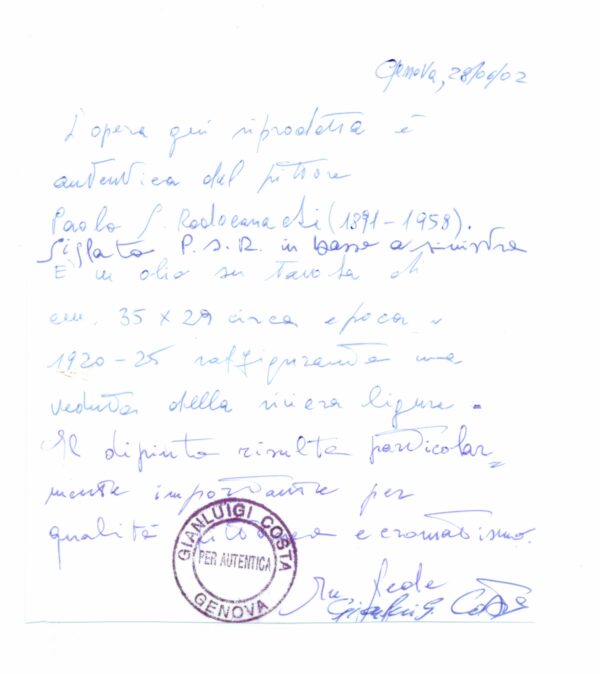 Genova, 28/06/02
L'opera qui riprodotta è
autentica del pittore
Paolo S. Rodocanachi (1891-1958).
Siglato P.S.R. in basso a sinistra
È un olio su tavola di
cm. 35 x 29 circa epoca
1920-25 raffigurante una
veduta della riviera ligure.
Il dipinto risulta particolar=
mente importante per
qualità pittorica e cromatismo.
In fede
Gianluigi Costa
GIANLUIGI COSTA
PER AUTENTICA
GENOVA